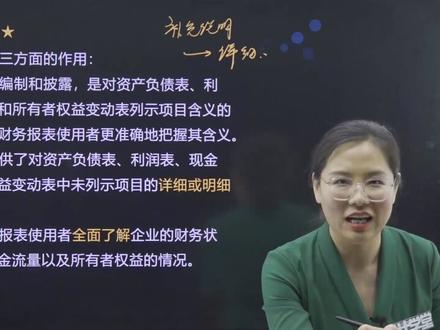 补充说明
→ 详细
三方面的作用：
编制和披露，是对资产负债表、利
和所有者权益变动表列示项目含义的
财务报表使用者更准确地把握其含义。
供了对资产负债表、利润表、现金
益变动表中未列示项目的详细或明细
报表使用者全面了解企业的财务状
金流量以及所有者权益的情况。